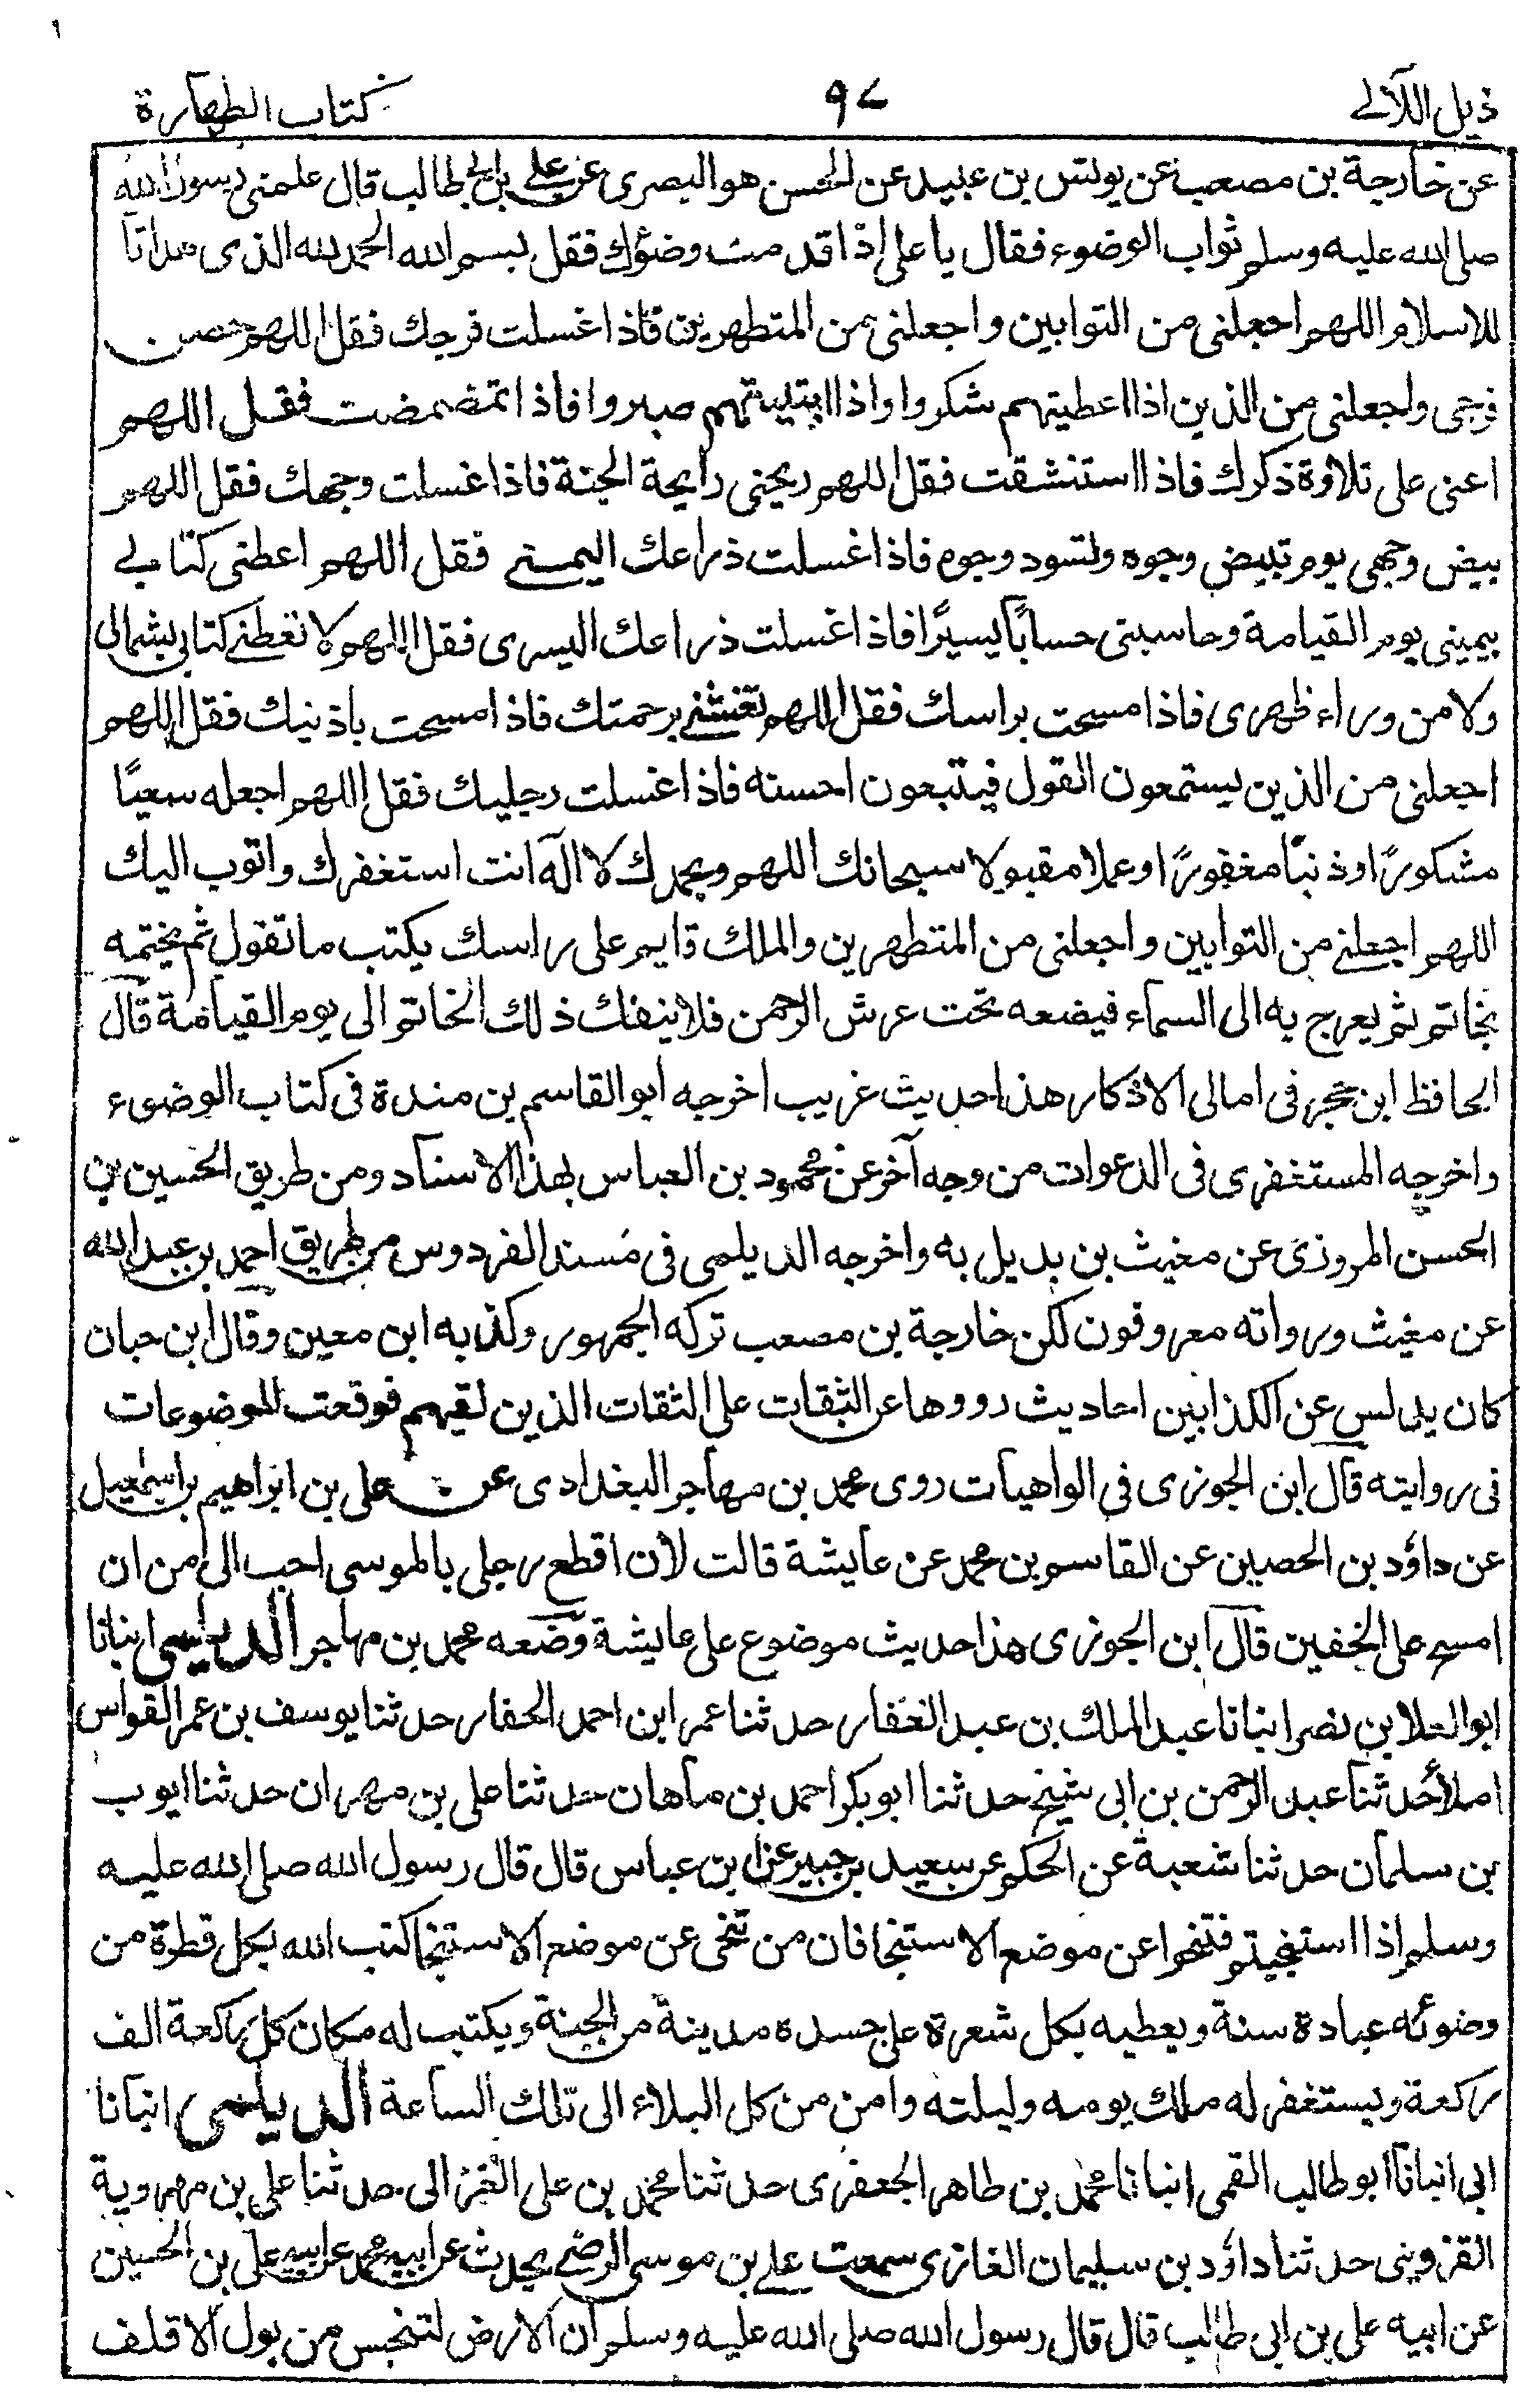 ذيل اللآلے ٩٧ كتاب الطهارة
عن خارجة بن مصعب عن يونس بن عبيد عن الحسن هو البصرى عن على بن ابى طالب قال علمنى رسول الله
صلى الله عليه وسلم ثواب الوضوء فقال يا على اذا قدمت وضوٴك فقل بسم الله الحمد لله الذى هدانا
للاسلام اللهم اجعلنى من التوابين واجعلنى من المتطهرين فاذا غسلت فرجك فقل اللهم حصن
فرجى واجعلنى من الذين اذا اعطيتهم شكروا واذا ابتليتهم صبروا فاذا تمضمضت فقل اللهم
اعنى على تلاوة ذكرك فاذا استنشقت فقل اللهم ريحنى رايحة الجنة فاذا غسلت وجهك فقل اللهم
بيض وجهى يوم تبيض وجوه وتسود وجوه فاذا غسلت ذراعك اليمنے فقل اللهم اعطنى كتابے
بيمينى يوم القيامة وحاسبنى حساباً يسيرًا فاذا غسلت ذراعك اليسرى فقل اللهم لا تعطنے كتابى بشمالى
ولا من وراء ظهرى فاذا مسحت براسك فقل اللهم تغشنے برحمتك فاذا مسحت باذنيك فقل اللهم
اجعلنى من الذين يستمعون القول فيتبعون احسنه فاذا غسلت رجليك فقل اللهم اجعله سعيًا
مشكورًا وذنبًا مغفورًا وعملا مقبولا سبحانك اللهم وبحمدك لا اله انت استغفرك واتوب اليك
اللهم اجعلنے من التوابين واجعلنى من المتطهرين والملك قايم على راسك يكتب ما تقول ثم يختمه
بخاتم ثم يعرج به الى السماء فيضعه تحت عرش الرحمن فلا ينفك ذلك الخاتم الى يوم القيامة قال
الحافظ ابن حجر فى امالى الاذكار هذا حديث غريب اخرجه ابو القاسم بن مندة فى كتاب الوضوء
واخرجه المستغفرى فى الدعوات من وجه آخر عن محمود بن العباس بهذا الاسناد ومن طريق الحسين بن
الحسن المروزى عن مغيث بن بديل به واخرجه الديلمى فى مسند الفردوس من طريق احمد بن عبد الله
عن مغيث ورواته معروفون لكن خارجة بن مصعب تركه الجمهور وكذبه ابن معين وقال ابن حبان
كان يدلس عن الكذابين احاديث رووها عن الثقات على الثقات الذين لقيهم فوقعت الموضوعات
فى روايته قال ابن الجوزى فى الواهيات روى محمد بن مهاجر البغدادى عن على بن ابراهيم بن اسمعيل
عن داوٗد بن الحصين عن القاسم بن محمد عن عايشة قالت لان اقطع رجلى بالموسى احب الى من ان
امسح على الخفين قال ابن الجوزى هذا حديث موضوع على عايشة وضعه محمد بن مهاجر الديلمى انبانا
ابو العلا بن نصر انبانا عبد الملك بن عبد الغفار حدثنا عمر ابن احمد الحفار حدثنا يوسف بن عمر القواس
املاً حدثنا عبد الرحمن بن ابى شيخ حدثنا ابو بكر احمد بن ماهان حدثنا على بن مهران حدثنا ايوب
بن سلمان حدثنا شعبة عن الحكم عن سعيد بن جبير عن ابن عباس قال قال رسول الله صلى الله عليه
وسلم اذا استنجيتم فتنحوا عن موضع الاستنجا فان من تنحى عن موضع الاستنجا كتب الله بكل قطرة من
وضوئه عبادة سنة ويعطيه بكل شعرة على جسده مدينة من الجنة ويكتب له مكان كل ركعة الف
ركعة ويستغفر له ملك يومه وليلته وامن من كل البلاء الى تلك الساعة الديلمى انبانا
ابى انبانا ابو طالب القمى انبانا محمد بن طاهر الجعفرى حدثنا محمد بن على الغزالى حدثنا على بن مهروية
القزوينى حدثنا داوٗد بن سليمان الغازى سمعت على بن موسى الرضے يحدث عن ابيه محمد عن ابيه على بن الحسين
عن ابيه على بن ابى طالب قال قال رسول الله صلى الله عليه وسلم ان الارض لتنجس من بول الاقلف